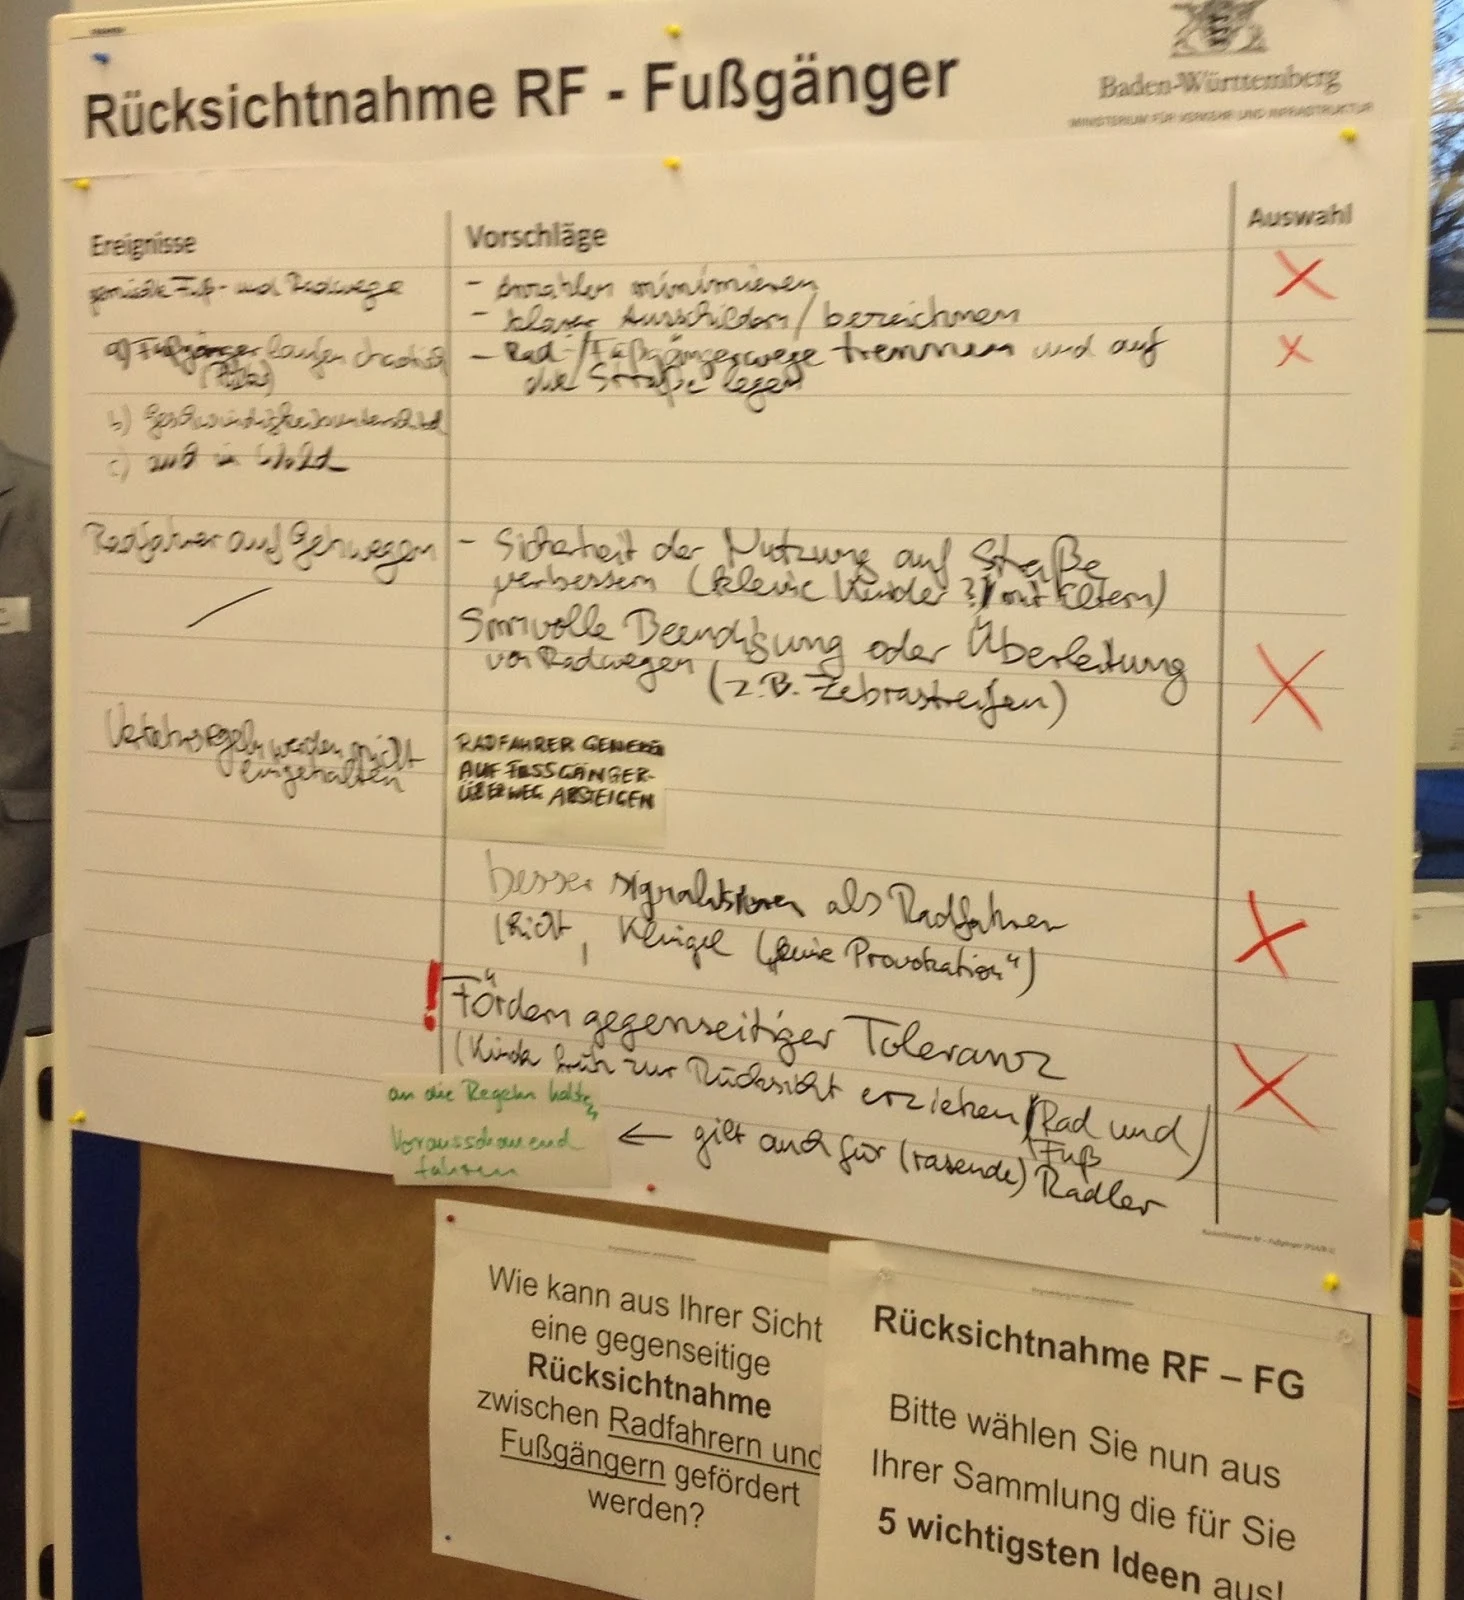 Rücksichtnahme RF - Fußgänger
Baden-Württemberg
MINISTERIUM FÜR VERKEHR UND INFRASTRUKTUR
Ereignisse
Vorschläge
Auswahl
gemischte Fuß- und Radwege
- minimieren
- klarer Ausschildern / bezeichnen
a) Fußgänger laufen chaotisch
- Rad-/Fußgängerwege trennen und auf
die Straße legen
b) Geschwindigkeitsunterschied
c) auch im Wald
Radfahrer auf Gehwegen
- Sicherheit der Nutzung auf Straße
verbessern (kleine Kinder ?/ mit Eltern)
Sinnvolle Beendigung oder Überleitung
von Radwegen (z.B. Zebrastreifen)
Verkehrsregeln werden nicht
eingehalten
RADFAHRER GENERELL
AUF FUSSGÄNGER-
ÜBERWEG ABSTEIGEN
besser signalisieren als Radfahrer
(Licht, Klingel („keine Provokation“)
! Fördern gegenseitiger Toleranz
(Kinder früh zur Rücksicht erziehen / Rad und
Fuß)
an die Regeln halten,
Vorausschauend
fahren
← gilt auch für (rasende) Radler
Wie kann aus Ihrer Sicht
eine gegenseitige
Rücksichtnahme
zwischen Radfahrern und
Fußgängern gefördert
werden?
Rücksichtnahme RF – FG
Bitte wählen Sie nun aus
Ihrer Sammlung die für Sie
5 wichtigsten Ideen aus!